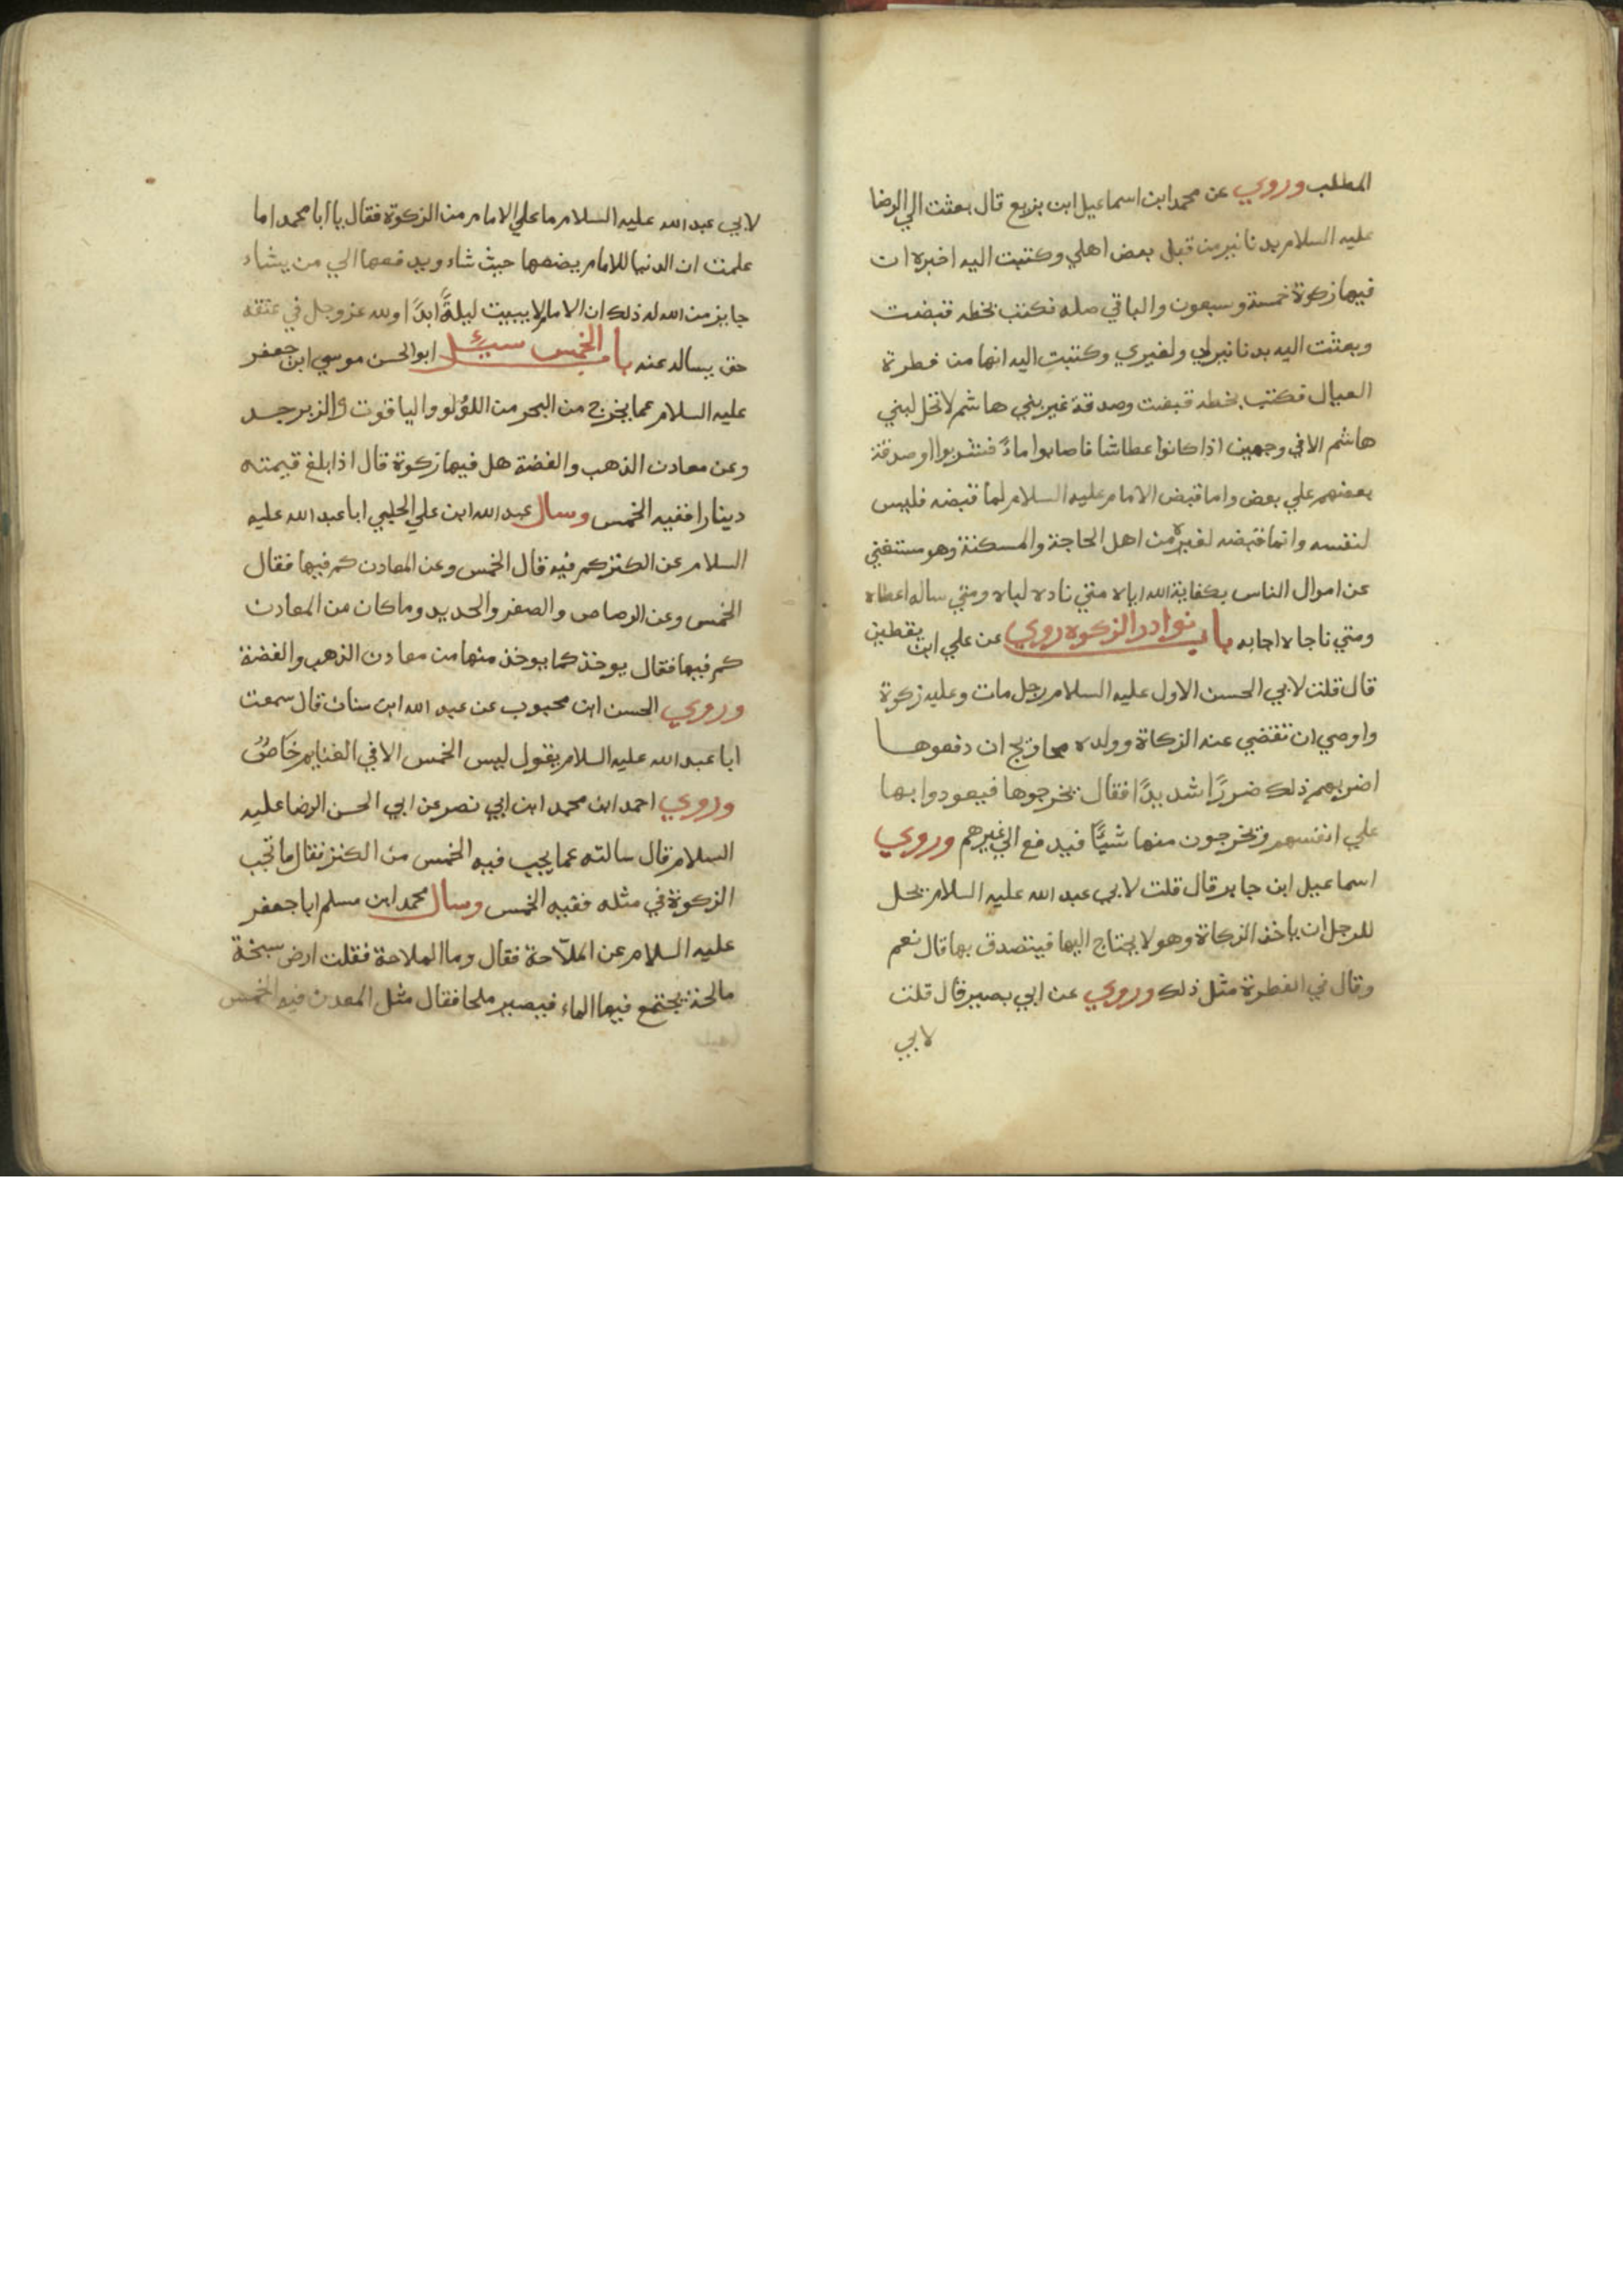 المطلب وروي عن محمد ابن اسماعيل ابن بزيع قال بعثت الي الرضا
عليه السلام بدنانير من قبل بعض اهلي وكتبت اليه اخبره ان
فيها زكوة خمسة وسبعون والباقي صله فكتب بخطه قبضت
وبعثت اليه بدنانير لي ولغيري وكتبت اليه انها من فطرة
العيال فكتب بخطه قبضت وصدقة غير بني هاشم لا تحل لبني
هاشم الا في وجهين اذا كانوا عطاشا فاصابوا ماءً فشربوا او صدقة
بعضهم علي بعض واما قبض الامام عليه السلام لما قبضه فليس
لنفسه وانما قبضه لغيره من اهل الحاجة والمسكنة وهو مستغني
عن اموال الناس بكفاية الله اياه متي ناداه لباه ومتي ساله اعطاه
ومتي ناجاه اجابه باب نوادر الزكوه روي عن علي ابن يقطين
قال قلت لابي الحسن الاول عليه السلام رجل مات وعليه زكوة
واوصي ان تقضي عنه الزكاة وولده محاويج ان دفعوها
اضر بهم ذلك ضررًا شديدًا فقال يخرجوها فيعودوا بها
علي انفسهم ويخرجون منها شيًا فيدفع الي غيرهم وروي
اسماعيل ابن جابر قال قلت لابي عبد الله عليه السلام يحل
للرجل ان ياخذ الزكاة وهو لا يحتاج اليها فيتصدق بها قال نعم
وقال في الفطرة مثل ذلك وروي عن ابي بصير قال قلت
لابي
لابي عبد الله عليه السلام ما علي الامام من الزكوة فقال يا ابا محمد اما
علمت ان الدنيا للامام يضعها حيث شاء ويدفعها الي من يشاء
جايز من الله له ذلك ان الامام لا يبيت ليلةً ابدًا ولله عز وجل في عنقه
حق يساله عنه باب الخمس سيئل ابو الحسن موسي ابن جعفر
عليه السلام عما يخرج من البحر من اللؤلو والياقوت والزبرجد
وعن معادن الذهب والفضة هل فيها زكوة قال اذا بلغ قيمته
دينارا ففيه الخمس وسال عبد الله ابن علي الحلبي ابا عبد الله عليه
السلام عن الكنز كم فيه قال الخمس وعن المعادن كم فيها فقال
الخمس وعن الرصاص والصفر والحديد وما كان من المعادن
كم فيها فقال يوخذ كما يوخذ منها من معادن الذهب والفضة
وروي الحسن ابن محبوب عن عبد الله ابن سنان قال سمعت
ابا عبد الله عليه السلام يقول ليس الخمس الا في الغنايم خَاصٌ
وروي احمد ابن محمد ابن ابي نصر عن ابي الحسن الرضا عليه
السلام قال سالته عما يجب فيه الخمس من الكنز فقال ما تجب
الزكوة في مثله ففيه الخمس وسال محمد ابن مسلم ابا جعفر
عليه السلام عن الملّاحة فقال وما الملاحة فقلت ارض سبخة
مالحة يجتمع فيها الماء فيصير ملحا فقال مثل المعدن فيه الخمس